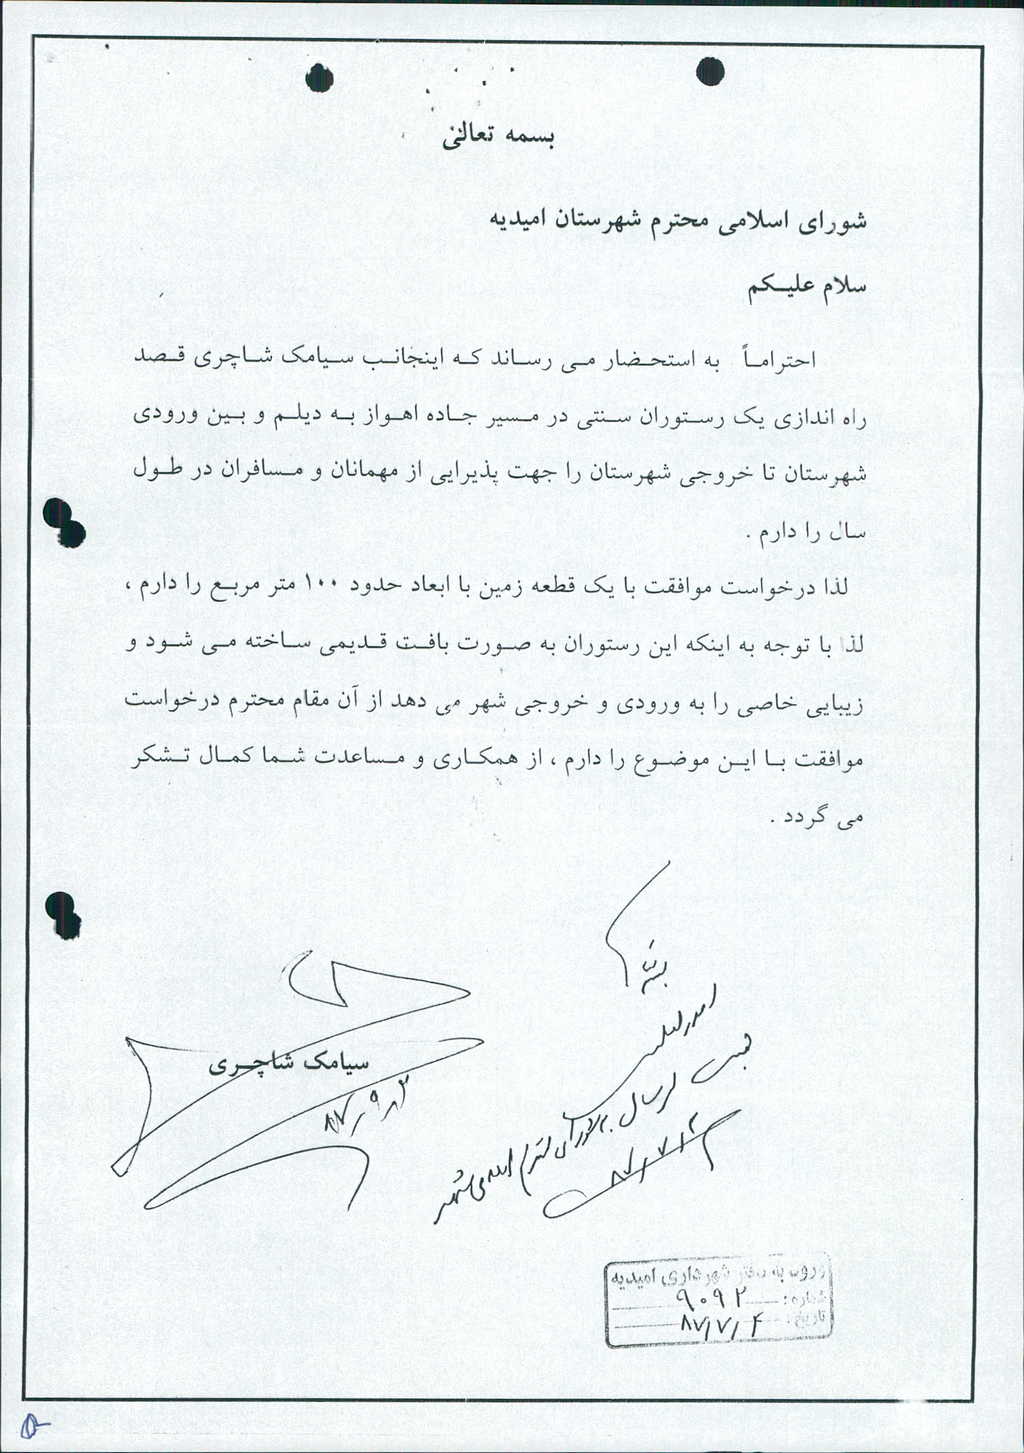 بسمه تعالی
شورای اسلامی محترم شهرستان امیدیه
سلام علیکم
احتراماً به استحضار می رساند که اینجانب سیامک شاچری قصد
راه اندازی یک رستوران سنتی در مسیر جاده اهواز به دیلم و بین ورودی
شهرستان تا خروجی شهرستان را جهت پذیرایی از مهمانان و مسافران در طول
سال را دارم .
لذا درخواست موافقت با یک قطعه زمین با ابعاد حدود ۱۰۰ متر مربع را دارم ،
لذا با توجه به اینکه این رستوران به صورت بافت قدیمی ساخته می شود و
زیبایی خاصی را به ورودی و خروجی شهر می دهد از آن مقام محترم درخواست
موافقت با این موضوع را دارم ، از همکاری و مساعدت شما کمال تشکر
می گردد .
سیامک شاچری
ارسال به شورای محترم اسلامی شهر
۸۷/۷/۲
ورود به دفتر شهرداری امیدیه
شماره : ۹۰۹۲
تاریخ : ۸۷/۷/۴